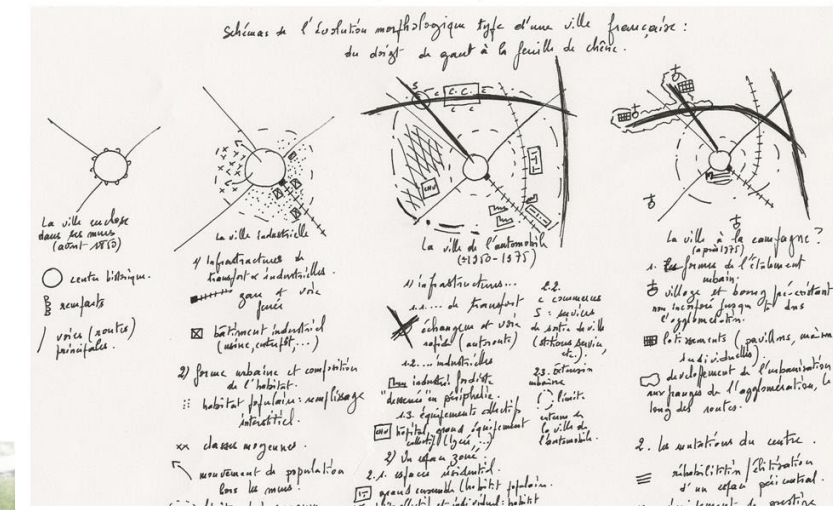 Schémas de l'évolution morphologique type d'une ville française :
du doigt de gant à la feuille de chêne.
La ville enclose
dans ses murs
(avant 1850)
centre historique.
remparts
voies (routes)
principales.
La ville industrielle
1) infrastructures de
transport & industrielles.
gare et voie
ferrée
bâtiment industriel
(usine, entrepôt, ...)
2) forme urbaine et composition
de l'habitat.
habitat populaire : remplissage
interstitiel.
xx classes moyennes.
mouvement de population
hors les murs.
S
C.C.
c
c
c
CHU
La ville de l'automobile
(±1950-1975)
1) infrastructures...
1.1. ... de transport
échangeur et voie
rapide (autoroute)
1.2. ... industrielles
industrie fordiste
"desserrée" en périphérie.
1.3. équipements collectifs
CHU hôpital, grand équipement
collectif (lycée, ...)
2) Un espace zoné :
2.1. espaces résidentiel.
grand ensemble (habitat populaire.
2.2.
c commerces
S : services
de sortie de ville
(stations service
etc.).
2.3. extension
urbaine
limite
externe de
la ville de
l'automobile.
La ville à la campagne ?
(après 1975)
1. Les formes de l'étalement
urbain.
village et bourg préexistant
non incorporé jusque là dans
l'agglomération.
lotissements (pavillons, maisons
individuelles).
développement de l'urbanisation
aux franges de l'agglomération, le
long des routes.
2. Les mutations du centre.
réhabilitation / élitisation
d'un espace péricentral.